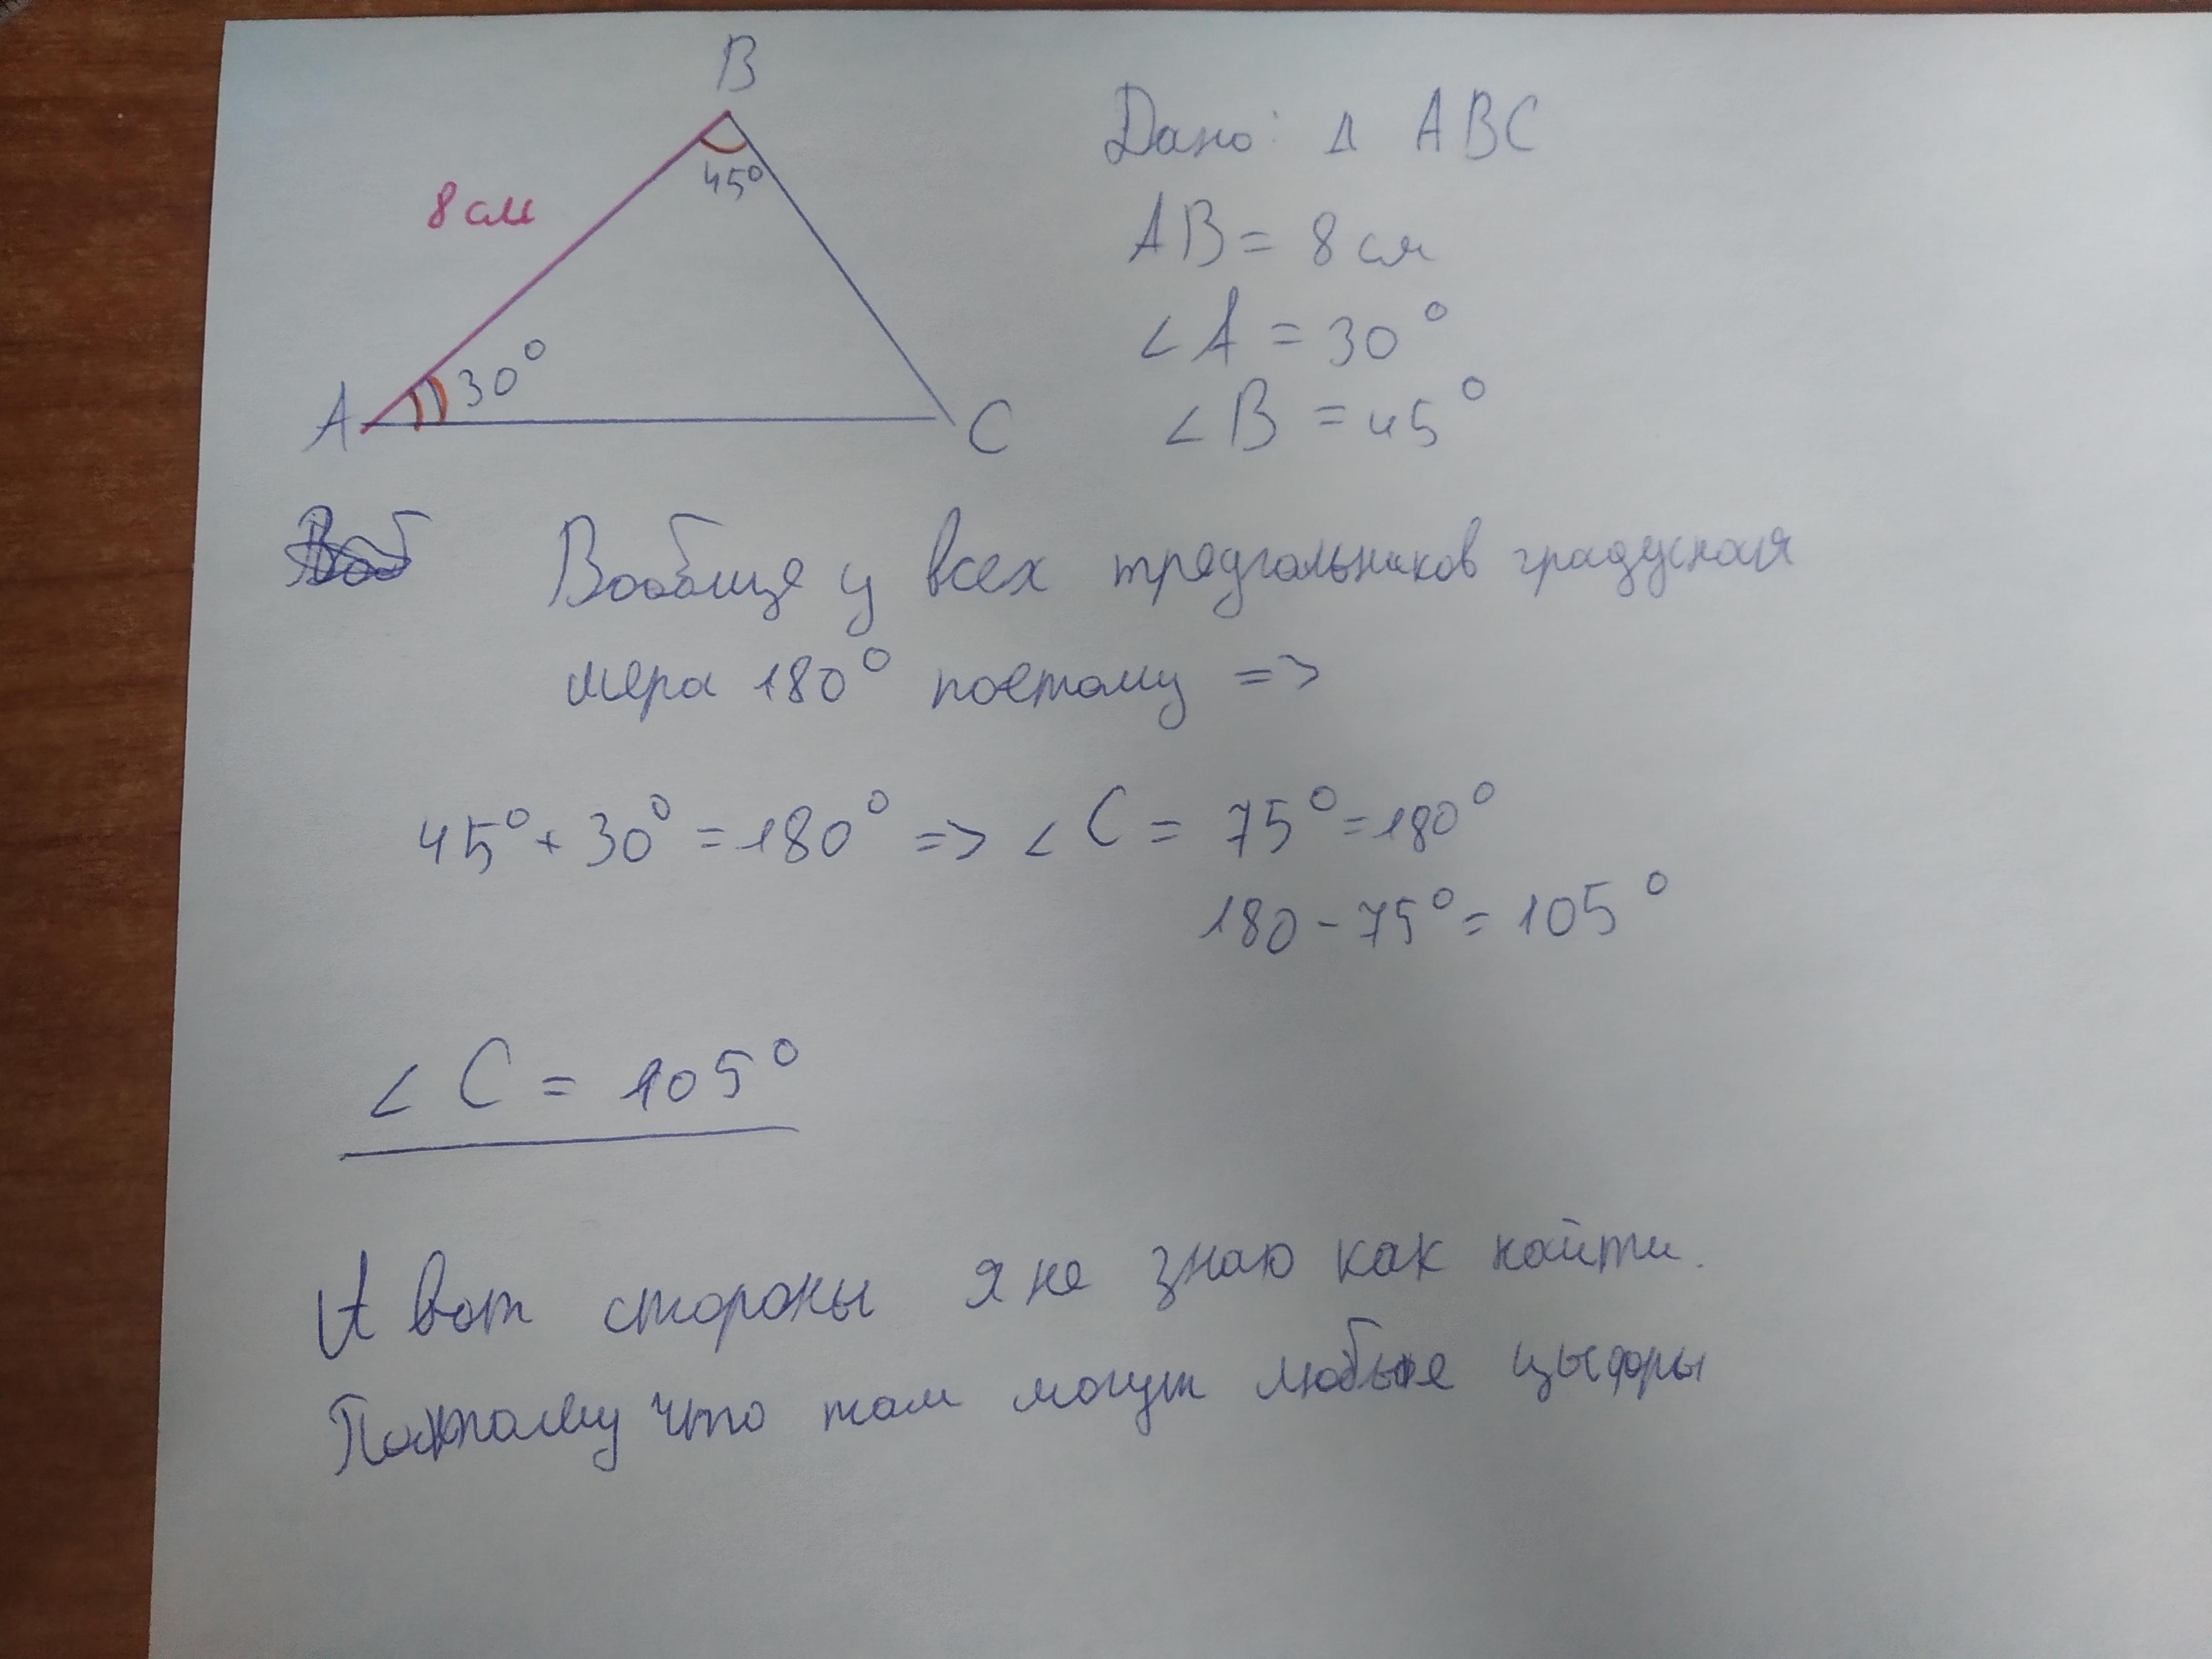 B
45°
8 см
30°
A
C
Дано: Δ ABC
AB = 8 см
∠A = 30°
∠B = 45°
Вообще у всех треугольников градусная
мера 180° поетому =>
45° + 30° = 180° => ∠C = 75° = 180°
180 - 75° = 105°
∠C = 105°
А вот стороны я не знаю как найти.
Потому что там могут любые цыфры